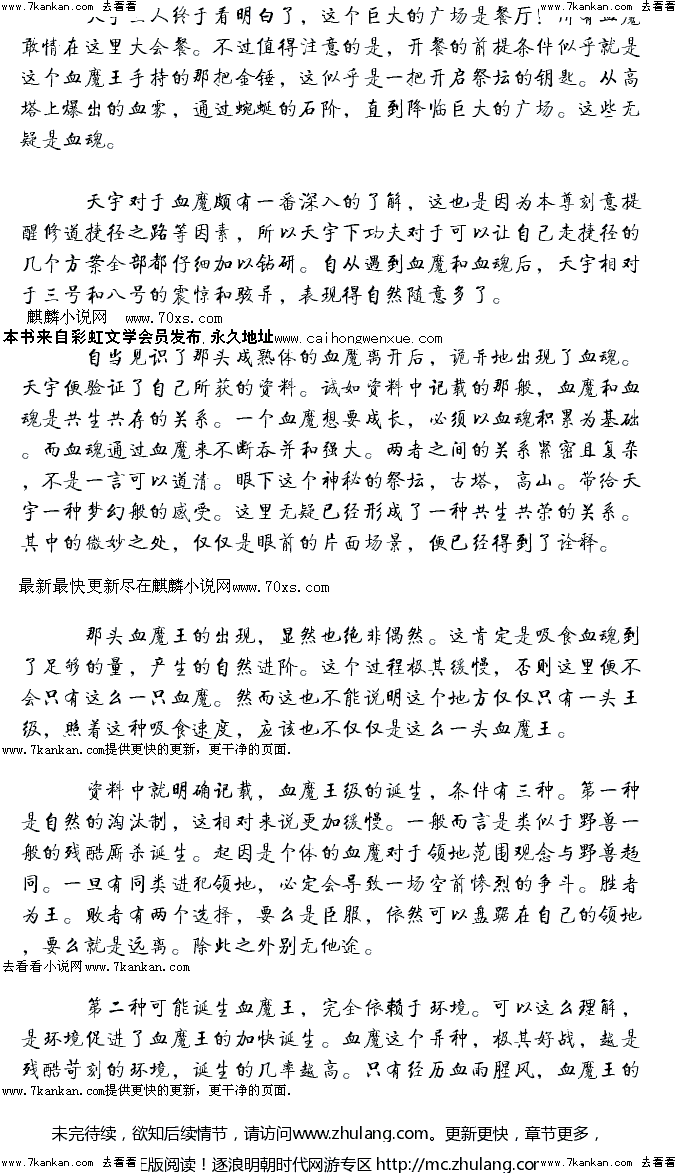 www.7kankan.com 去看看 www.7kankan.com 去看看
天宇三人终于看明白了，这个巨大的广场是餐厅！所有血魔
敢情在这里大会餐。不过值得注意的是，开餐的前提条件似乎就是
这个血魔王手持的那把金锤，这似乎是一把开启祭坛的钥匙。从高
塔上爆出的血雾，通过蜿蜒的石阶，直到降临巨大的广场。这些无
疑是血魂。
天宇对于血魔颇有一番深入的了解，这也是因为本尊刻意提
醒修道捷径之路等因素，所以天宇下功夫对于可以让自己走捷径的
几个方案全部都仔细加以钻研。自从遇到血魔和血魂后，天宇相对
于三号和八号的震惊和骇异，表现得自然随意多了。
麒麟小说网 www.70xs.com
本书来自彩虹文学会员发布，永久地址www.caihongwenxue.com
自当见识了那头成熟体的血魔离开后，诡异地出现了血魂。
天宇便验证了自己所获的资料。诚如资料中记载的那般，血魔和血
魂是共生共存的关系。一个血魔想要成长，必须以血魂积累为基础
。而血魂通过血魔来不断吞并和强大。两者之间的关系紧密且复杂
，不是一言可以道清。眼下这个神秘的祭坛，古塔，高山。带给天
宇一种梦幻般的感受。这里无疑已经形成了一种共生共荣的关系。
其中的微妙之处，仅仅是眼前的片面场景，便已经得到了诠释。
最新最快更新尽在麒麟小说网www.70xs.com
那头血魔王的出现，显然也绝非偶然。这肯定是吸食血魂到
了足够的量，产生的自然进阶。这个过程极其缓慢，否则这里便不
会只有这么一只血魔。然而这也不能说明这个地方仅仅只有一头王
级，照着这种吸食速度，应该也不仅仅是这么一头血魔王。
www.7kankan.com提供更快的更新，更干净的页面.
资料中就明确记载，血魔王级的诞生，条件有三种。第一种
是自然的淘汰制，这相对来说更加缓慢。一般而言是类似于野兽一
般的残酷厮杀诞生。起因是个体的血魔对于领地范围观念与野兽趋
同。一旦有同类进犯领地，必定会导致一场空前惨烈的争斗。胜者
为王。败者有两个选择，要么是臣服，依然可以盘踞在自己的领地
，要么就是远离。除此之外别无他途。
去看看小说网www.7kankan.com
第二种可能诞生血魔王，完全依赖于环境。可以这么理解，
是环境促进了血魔王的加快诞生。血魔这个异种，极其好战，越是
残酷苛刻的环境，诞生的几率越高。只有经历血雨腥风，血魔王的
www.7kankan.com提供更快的更新，更干净的页面.
未完待续，欲知后续情节，请访问www.zhulang.com。更新更快，章节更多，
www.7kankan.com 去看看 正版阅读！逐浪明朝时代网游专区 http://mc.zhulang.com www.7kankan.com 去看看